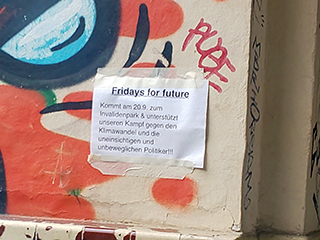 Fridays for future
Kommt am 20.9. zum
Invalidenpark & unterstützt
unseren Kampf gegen den
Klimawandel und die
uneinsichtigen und
unbeweglichen Politiker!!!